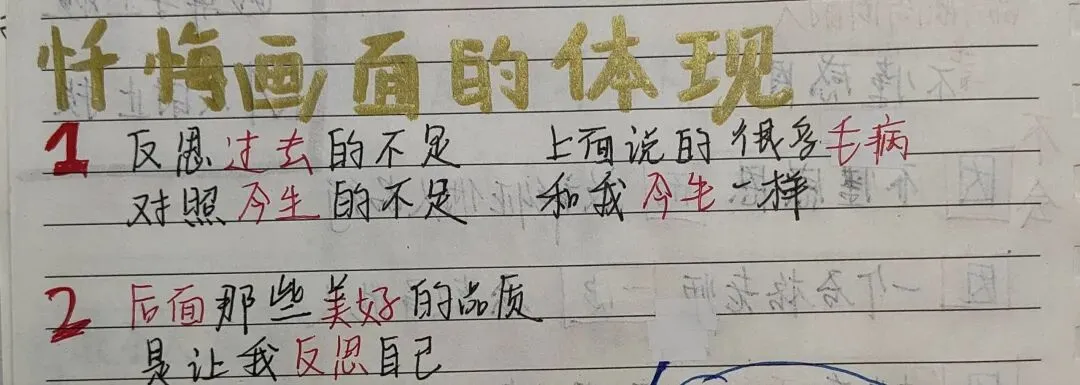 忏悔画面的体现
1 反思过去的不足 上面说的很多毛病
对照今生的不足 和我今生一样
2 后面那些美好的品质
是让我反思自己